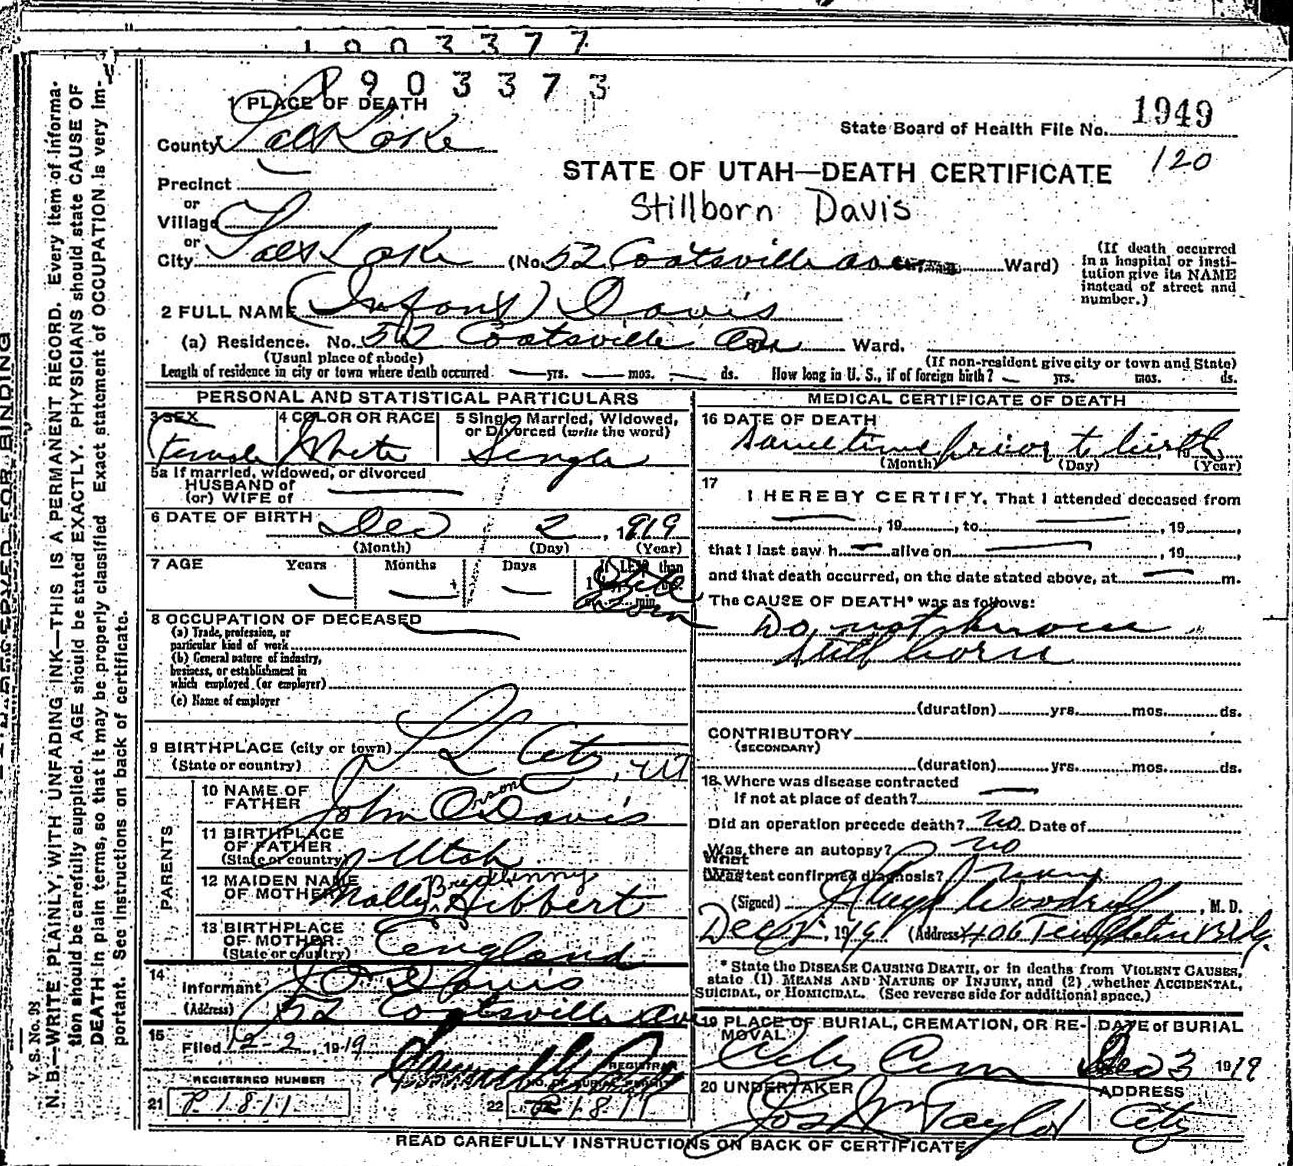 1003377
1903373
1949
State Board of Health File No.
120
1 PLACE OF DEATH
County Salt Lake
STATE OF UTAH—DEATH CERTIFICATE
Precinct
Stillborn Davis
or
Village
or
City Salt Lake (No. 52 Coatsville Ave Ward)
(If death occurred in a hospital or insti-
tution give its NAME
instead of street and
number.)
2 FULL NAME (Infant) Davis
(a) Residence. No. 52 Coatsville Av Ward.
(Usual place of abode) (If non-resident give city or town and State)
Length of residence in city or town where death occurred yrs. mos. ds. How long in U. S., if of foreign birth? yrs. mos. ds.
PERSONAL AND STATISTICAL PARTICULARS
3 SEX 4 COLOR OR RACE 5 Single, Married, Widowed,
or Divorced (write the word)
Female White Single
5a If married, widowed, or divorced
HUSBAND of
(or) WIFE of
6 DATE OF BIRTH Dec 2, 1919
(Month) (Day) (Year)
7 AGE Years Months Days If LESS than
Still
born
8 OCCUPATION OF DECEASED
(a) Trade, profession, or
particular kind of work
(b) General nature of industry,
business, or establishment in
which employed (or employer)
(c) Name of employer
9 BIRTHPLACE (city or town) S L City, Ut
(State or country)
PARENTS
10 NAME OF
FATHER John Orson Davis
11 BIRTHPLACE
OF FATHER
(State or country) Utah
12 MAIDEN NAME
OF MOTHER Hibbert
13 BIRTHPLACE
OF MOTHER
(State or country) England
14
Informant J O Davis
(Address) 52 Coatsville Ave
15
Filed 12-2, 1919
REGISTRAR
REGISTERED NUMBER
21 P1811
NO. OF BURIAL PERMIT
22 P1811
MEDICAL CERTIFICATE OF DEATH
16 DATE OF DEATH
Sometime prior to birth
(Month) (Day) (Year)
17
I HEREBY CERTIFY, That I attended deceased from
, 19, to , 19,
that I last saw h alive on , 19
and that death occurred, on the date stated above, at m.
The CAUSE OF DEATH* was as follows:
Do not know
Still born
(duration) yrs. mos. ds.
CONTRIBUTORY
(SECONDARY)
(duration) yrs. mos. ds.
18 Where was disease contracted
If not at place of death?
Did an operation precede death? no Date of
Was there an autopsy? no
What test confirmed diagnosis?
(Signed) Woodruff, M. D.
Dec 2, 1919 (Address) 406 Templeton Bldg.
* State the DISEASE CAUSING DEATH, or in deaths from VIOLENT CAUSES,
state (1) MEANS AND NATURE OF INJURY, and (2) whether ACCIDENTAL,
SUICIDAL, or HOMICIDAL. (See reverse side for additional space.)
19 PLACE OF BURIAL, CREMATION, OR RE-
MOVAL
DATE of BURIAL
City Cem Dec 3 1919
20 UNDERTAKER ADDRESS
Jos Wm Taylor City
READ CAREFULLY INSTRUCTIONS ON BACK OF CERTIFICATE
RESERVED FOR BINDING
V. S. No. 93
N. B.—WRITE PLAINLY, WITH UNFADING INK—THIS IS A PERMANENT RECORD. Every item of informa-
tion should be carefully supplied. AGE should be stated EXACTLY. PHYSICIANS should state CAUSE OF
DEATH in plain terms, so that it may be properly classified Exact statement of OCCUPATION is very im-
portant. See instructions on back of certificate.